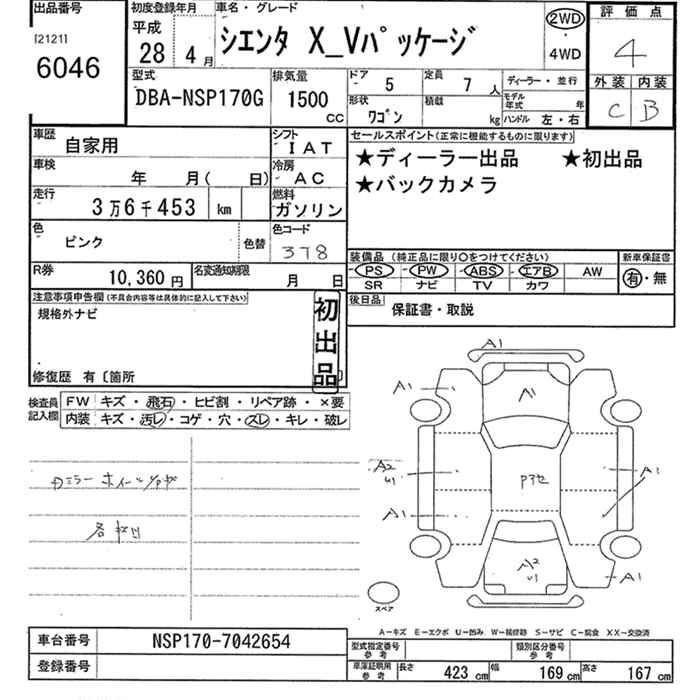 出品番号
[2121]
6046
初度登録年月
平成
28 年 4 月
車名・グレード
シエンタ X_Vパッケージ
2WD
・
4WD
評価点
4
外装 内装
C B
型式
DBA-NSP170G
排気量
1500
CC
ドア 5
定員 7 人
ディーラー・並行
形状 ワゴン
積載 kg
モデル年式 年
ハンドル 左・右
車歴 自家用
シフト
IAT
車検 年 月( 日)
冷房
AC
走行 3万6千453 km
燃料
ガソリン
色 ピンク 色替
色コード
3T8
R券 10,360円
名変通知期限 月 日
セールスポイント(正常に機能するものに限ります)
★ディーラー出品 ★初出品
★バックカメラ
装備品 (純正品に限り○をつけてください)
PS ・ PW ・ ABS ・ エアB ・ AW
SR ナビ TV カワ
新車保証書
有・無
後日品 保証書・取説
注意事項申告欄(不具合内容等は具体的に記入して下さい)
規格外ナビ
初出品
修復歴 有〔箇所 〕
検査員記入欄
FW キズ・飛石・ヒビ割・リペア跡・×要
内装 キズ・汚レ・コゲ・穴・スレ・キレ・破レ
A1
A1
A1
A2
U1
Pヨセ
A1
A1
A2
U1
A1
スペア
A-キズ E-エクボ U-凹み W-補修跡 S-サビ C-腐食 XX-交換済
車台番号 NSP170-7042654
登録番号
型式指定番号
参考
類別区分番号
参考
車庫証明用
参考
長さ 423 cm 幅 169 cm 高さ 167 cm